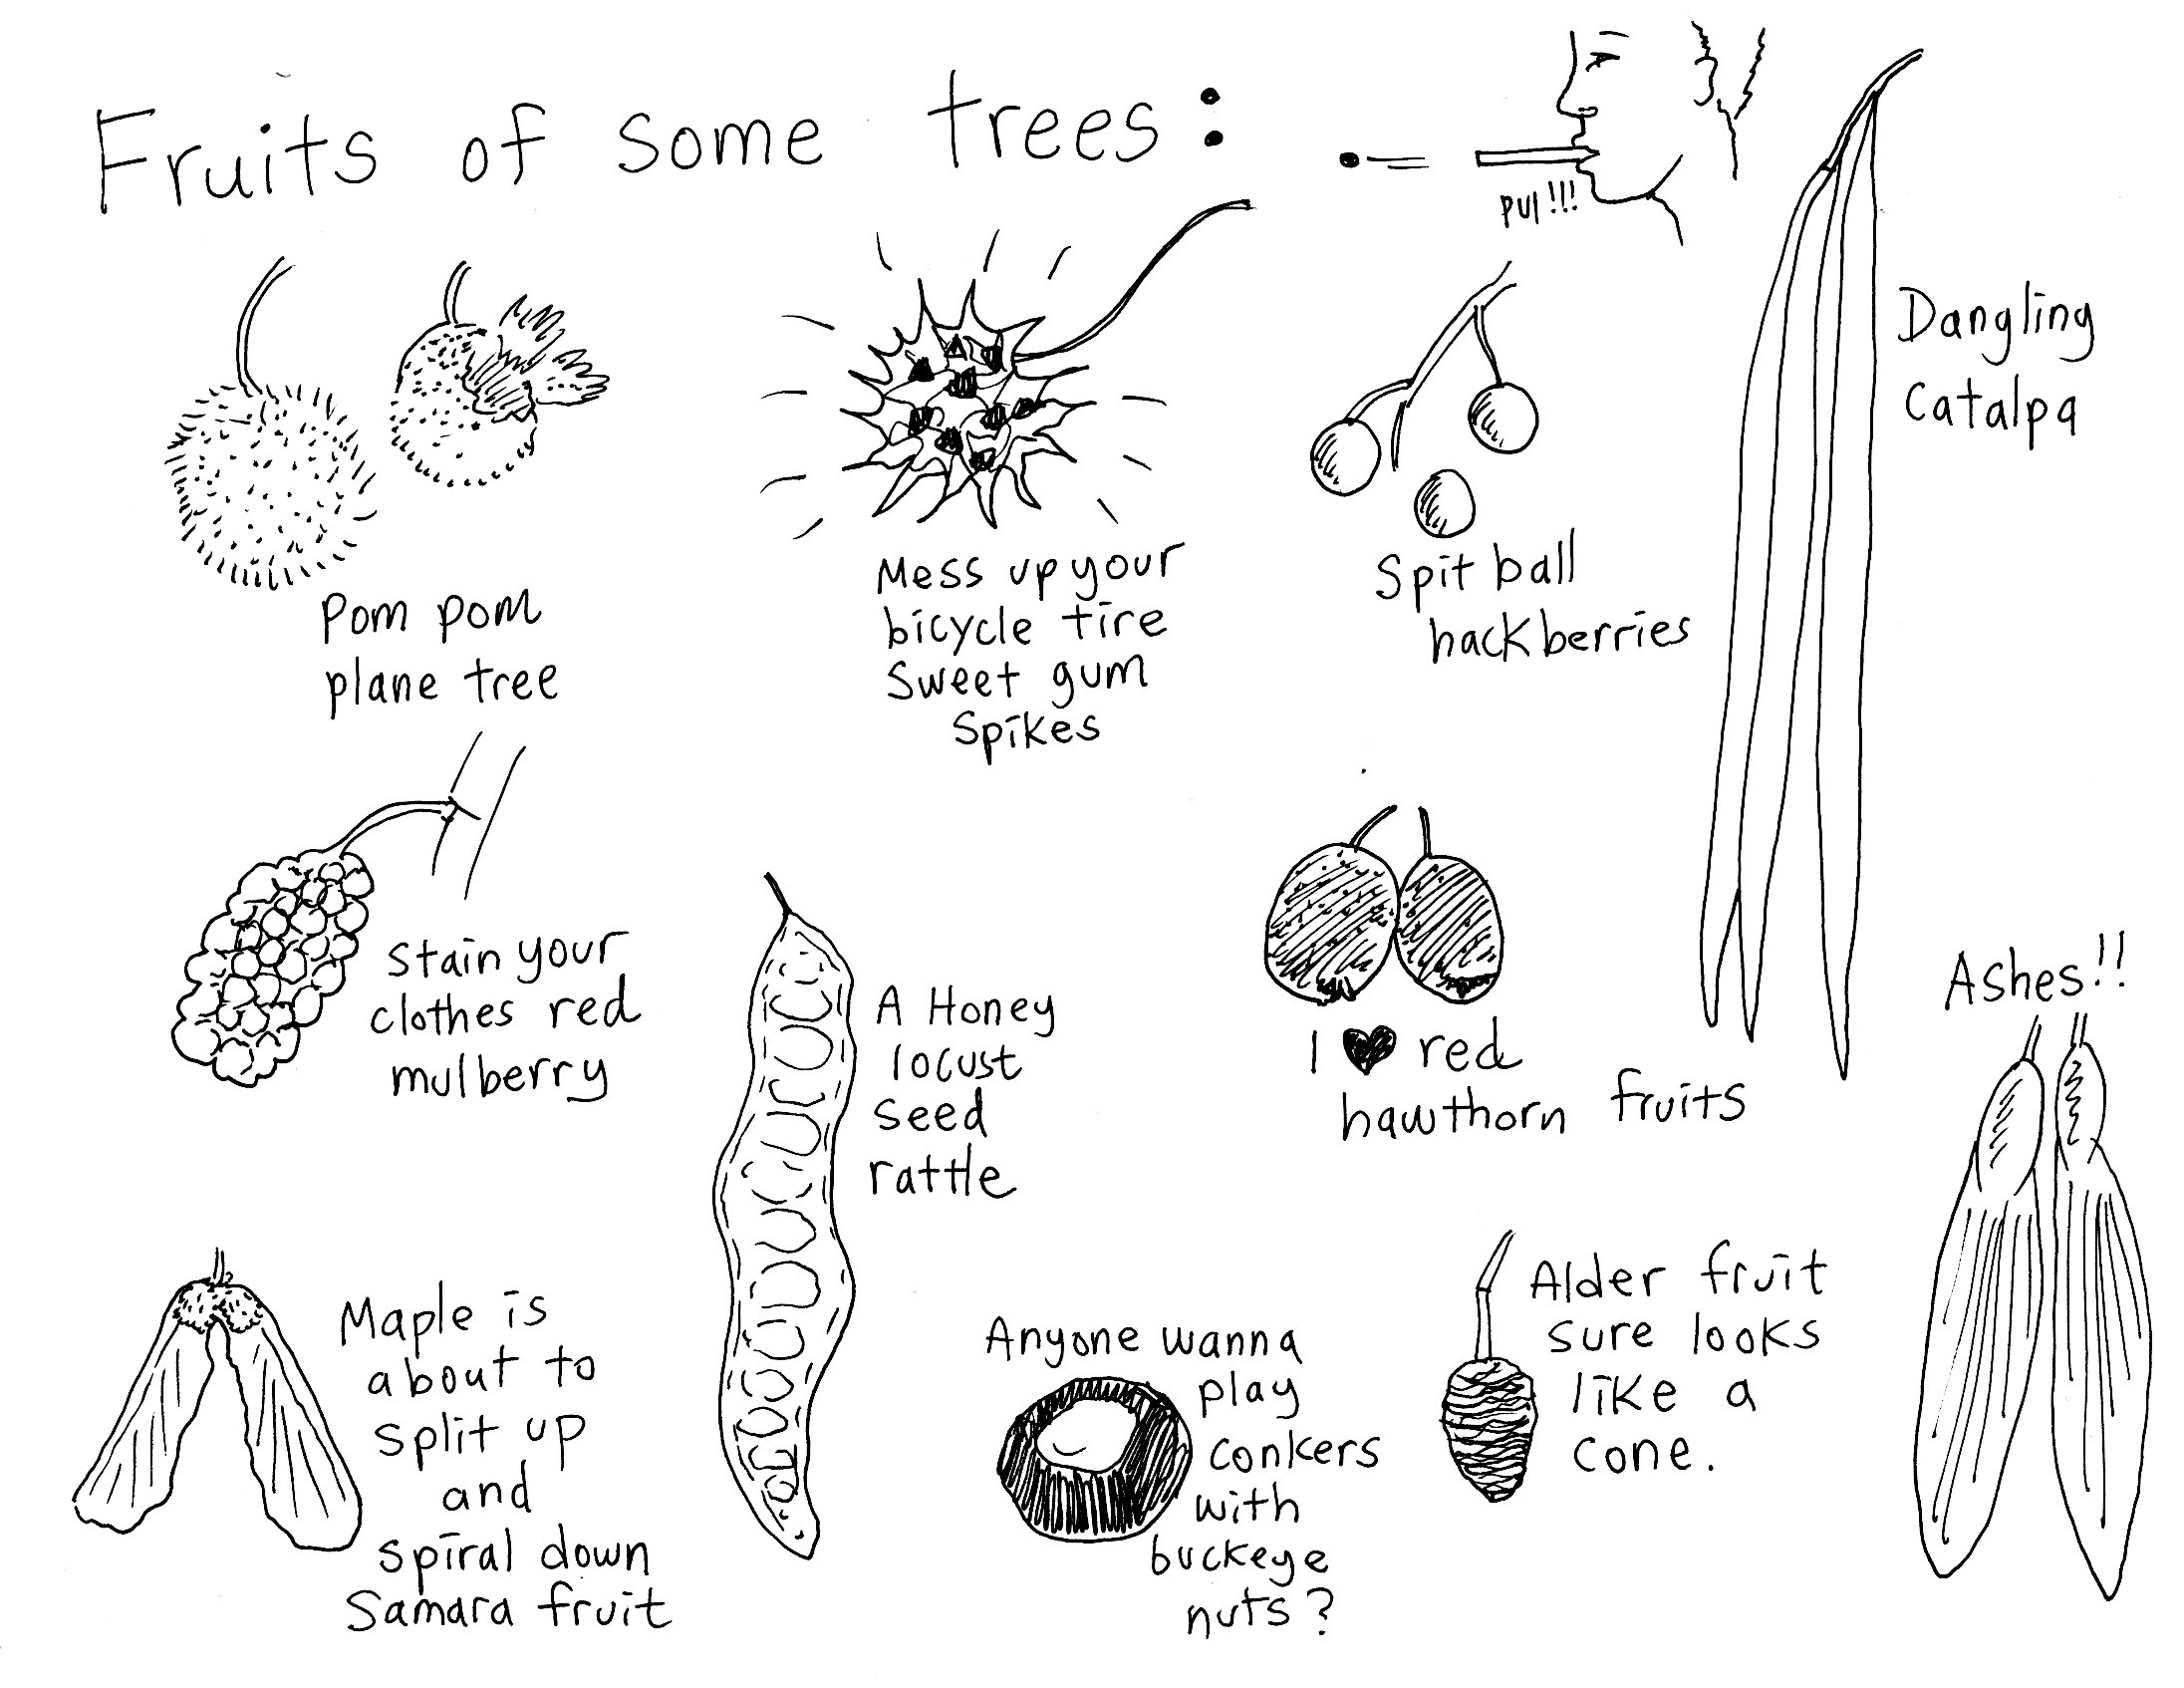 Fruits of some trees:
PUI!!!
Dangling
Catalpa
Pom pom
plane tree
Mess up your
bicycle tire
Sweet gum
Spikes
Spit ball
hackberries
Stain your
clothes red
mulberry
A Honey
locust
seed
rattle
I ♥ red
hawthorn fruits
Ashes!!
Maple is
about to
split up
and
spiral down
Samara fruit
Anyone wanna
play
conkers
with
buckeye
nuts?
Alder fruit
sure looks
like a
cone.